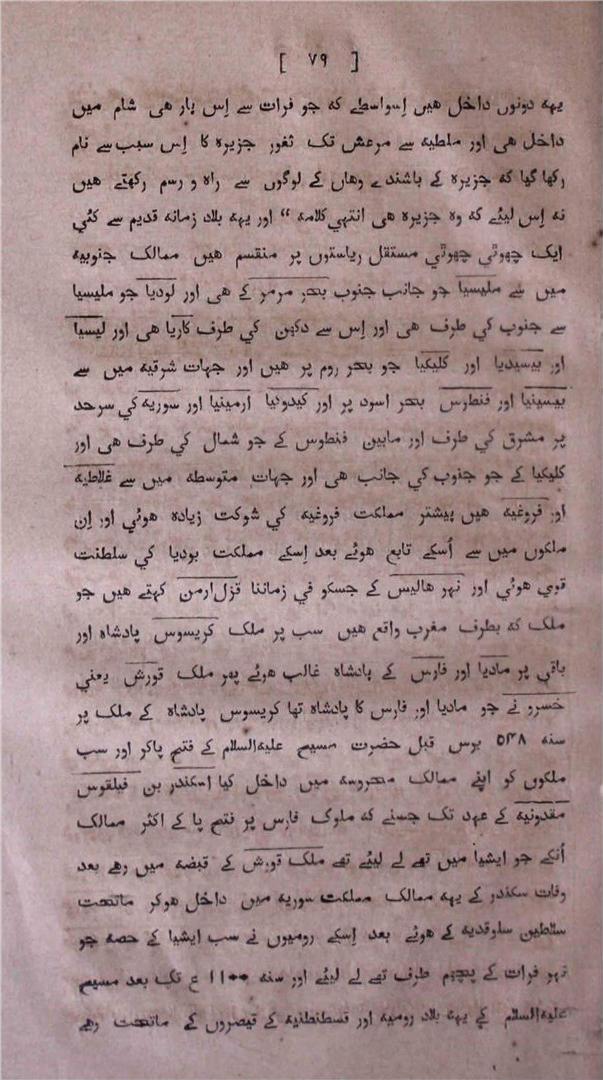 [ ٧٩ ]
يهه دونوں داخل هيں اِسواسطے كه جو فرات سے اِس پار هى شام ميں
داخل هى اور ملطيه سے مرعش تك ثغور جزيره كا اِس سبب سے نام
ركها گيا كه جزيره كے باشندے وهاں كے لوگوں سے راه و رسم ركهتے هيں
نه اِس ليئے كه وه جزيره هى انتهي كلامه “ اور يهه بلاد زمانه قديم سے كئي
ايك چهوٿي چهوٿي مستقل رياستوں پر منقسم هيں ممالك جنوبيه
ميں سے مليسيا جو جانب جنوب بحر مرمر كے هى اور لوديا جو مليسيا
سے جنوب كي طرف هى اور اِس سے دكهن كي طرف كاريا هى اور ليسيا
اور بيسيديا اور كليكيا جو بحر روم پر هيں اور جهات شرقيه ميں سے
بيسينيا اور فنطوس بحر اسود پر اور كيدوكيا ارمينيا اور سوريه كي سرحد
پر مشرق كي طرف اور مابين فنطوس كے جو شمال كي طرف هى اور
كليكيا كے جو جنوب كي جانب هى اور جهات متوسطه ميں سے غلاطيه
اور فروغيه هيں پيشتر مملكت فروغيه كي شوكت زياده هوئي اور اِن
ملكوں ميں سے اُسكے تابع هوئے بعد اِسكے مملكت بوديا كي سلطنت
قوي هوئي اور نهر هاليس كے جسكو في زماننا قزل ارمن كهتے هيں جو
ملك كه بطرف مغرب واقع هيں سب پر ملك كريسوس پادشاه اور
باقي پر ماديا اور فارس كے پادشاه غالب هوئے پهر ملك قورش يعني
خسرو نے جو ماديا اور فارس كا پادشاه تها كريسوس پادشاه كے ملك پر
سنه ٥٤٨ برس قبل حضرت مسيح عليه‌السلام كے فتح پاكر اور سب
ملكوں كو اپنے ممالك محروسه ميں داخل كيا اسكندر بن فيلقوس
مقدونيه كے عهد تك جسنے كه ملوك فارس پر فتح پا كے اكثر ممالك
اُنكے جو ايشيا ميں تهے لے ليئے تهے ملك قورش كے قبضه ميں رهے بعد
وفات سكندر كے يهه ممالك مملكت سوريه ميں داخل هوكر ماتحت
سلاطين سلوقديه كے هوئے بعد اِسكے روميوں نے سب ايشيا كے حصه جو
نهر فرات كے پچهم طرف تهے لے ليئے اور سنه ١١٠٠ ع تك بعد مسيح
عليه‌السلام كے يهه بلاد روميه اور قسطنطنيه كے قيصروں كے ماتحت رهے